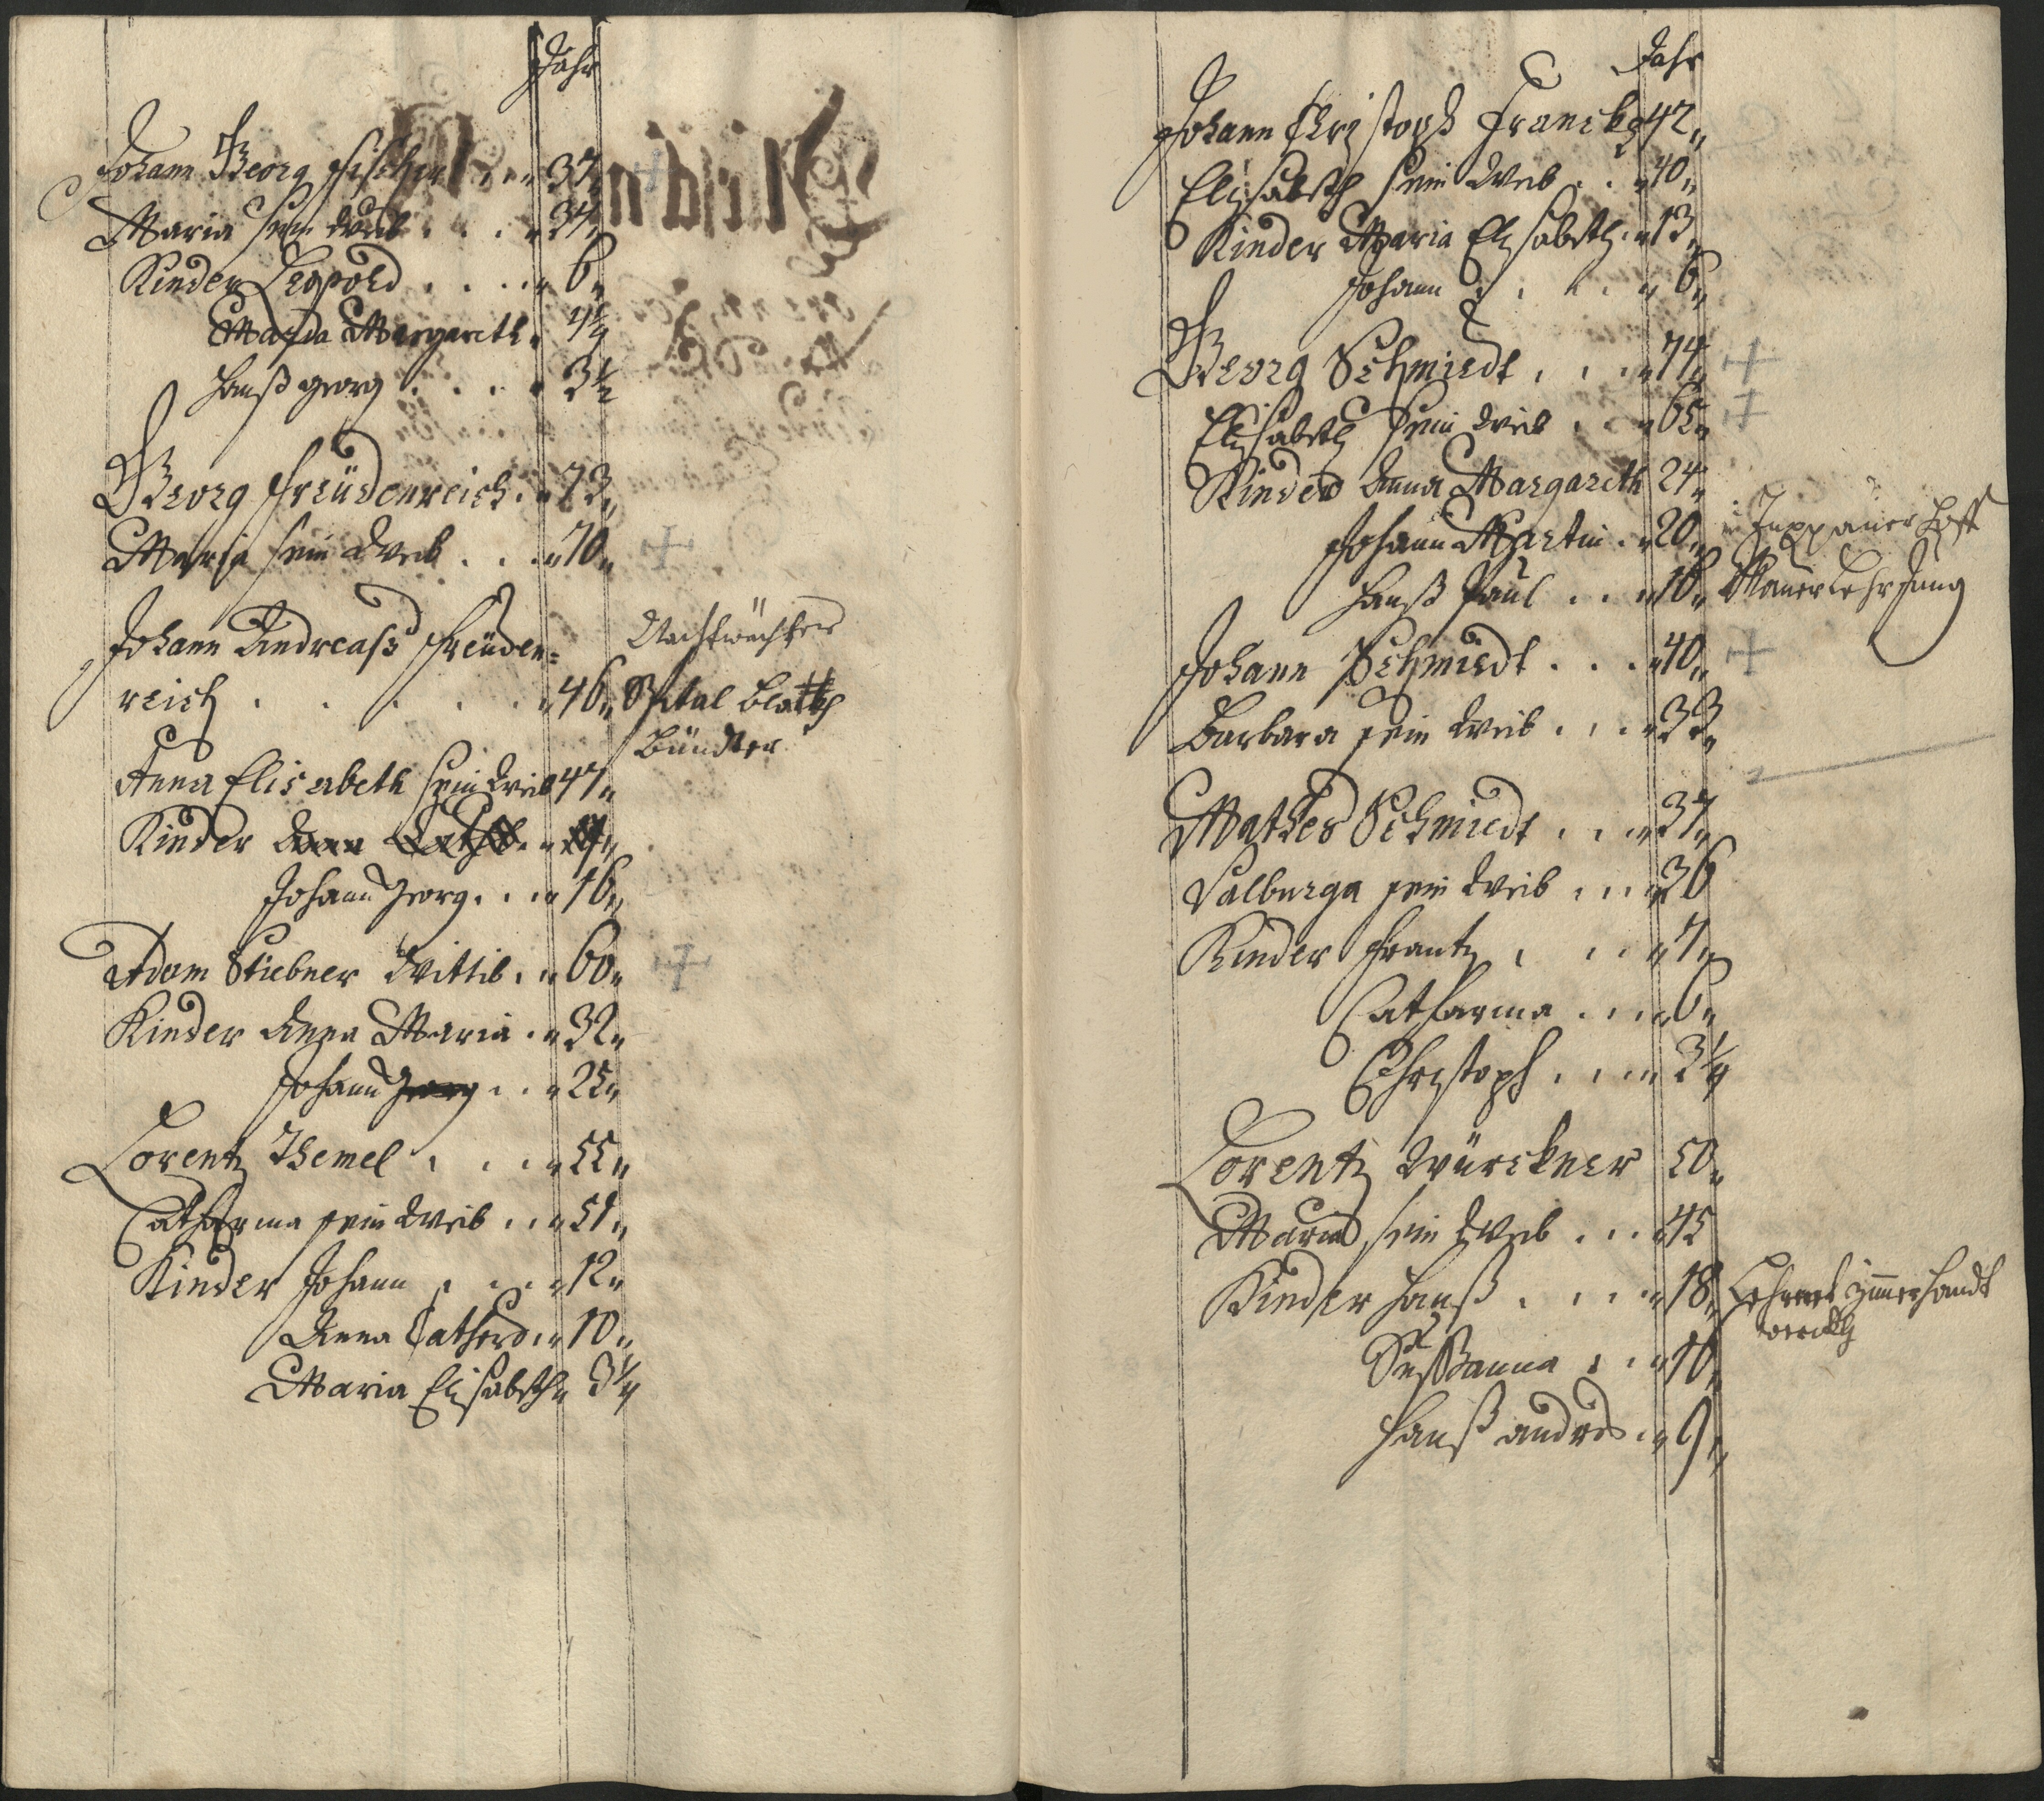 Jahr
Johann Georg Fischer . . . 37,,
Maria sein Weib . . . 34,,
Kinder Leopold . . . . 6,,
Maria Margareth. 4¼
Hanß Georg . . . . 3½
Georg Freüdenreich . . 73,,
Maria sein Weib . . . 70,,
Johann Andreass Freüden=
reich . . . . . 46,,
Nachtwächter
Spital
Bündter
Anna Elisabeth sein Weib 47,,
Kinder
Johann Georg . . . 16,,
Adam Stiebner Wittib . . 60,,
Kinder Anna Maria . . 32,,
Johann Georg . . . 25,,
Lorentz Themel . . . 55,,
Catharina sein Weib . . 51,,
Kinder Johann . . . . 12,,
Anna Cathar . . 10,,
Maria Elisabeth 3¼
Jahr
Johann Christoph Franck 42,,
Elisabeth sein Weib . . 40,,
Kinder Maria Elisabeth . 13,,
Johann . . . . 6,,
Georg Schmiedt . . . 74,,
Elisabeth sein Weib . . 65,,
Kinder Anna Margareth 24,,
Johann Martin . 20,,
Hanß Paul . . 16,, Maurer Lehr Jung
Johann Schmiedt . . . 40,,
Barbara sein Weib . . . 33,,
Mathes Schmiedt . . . 37,,
Salburga sein Weib . . . 36
Kinder Frantz . . . 7,,
Catharina . . . 6,,
Christoph . . . 3¼
Lorentz Würckner 50,,
Maria sein Weib . . . 45
Kinder Hanß . . . . 18,,
Sussanna . . . 10,,
Hanß Andres . . 9,,